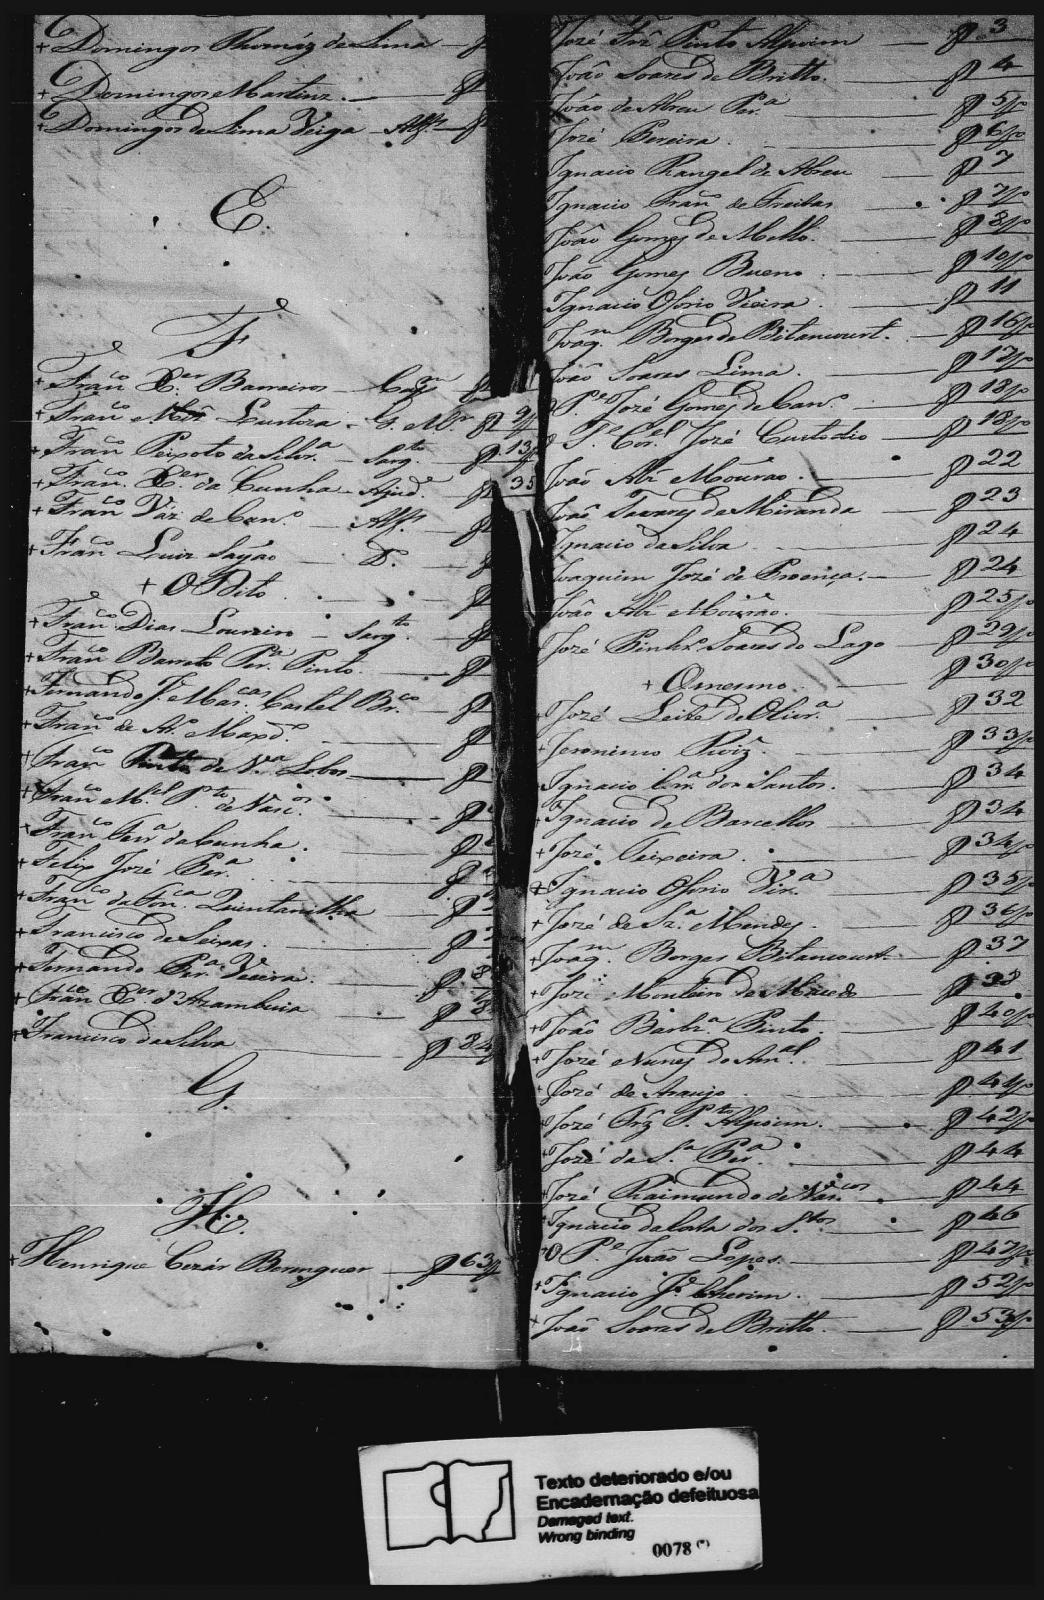 + Domingos Thomáz de Lima — f
+ Domingos Martinz. — f
+ Domingos de Lima Veiga - Alfs. — f
E.
F
+ Franco. Xer. Barreiros - Capm f
+ Franco. Lustoza - S. Mr f 9
+ Franco. Peixoto da Silva. - Sargto f 13
+ Franco. Xer. da Cunha - Ajude. f 35
+ Franco. Váz de Carvo. — Alfs. f
+ Franco. Luiz Sayão — D. f
+ O Dito . — f
+ Franco. Dias Loureiro - Sargto. f
+ Franco. Barreto Pera. Pinto. — f
+ Fernando Je. Mascas. Castel Brco. — f
+ Franco. de Ao. Maxdo. — f
+ Franco. Pinto de Na. Lobos — f
+ Franco. Mel. Pto. de Vascos. — f
+ Franco. Ferra. da Cunha. — f
+ Felix José Pera. — f
+ Franco. da Fonca. Quintanilha — f
+ Francisco de Seixas. — f
+ Fernando Pera. Vieira. — f 8
+ Franco. Xer. d'Azambuia — f 8
+ Francisco da Silva — f 84
G.
H.
+ Henrique Cezár Berenguer — f 63
José Frz Pinto Alpoim — f 3
João Soares de Britto. — f 4
João de Abreu Pera. — f 5
José Pereira. — f 6
Ignacio Rangel de Abreu — f 7
Ignacio Franco. de Freitas — f 7
João Gomes de Mello. — f 8
João Gomes Bueno. — f 10
Ignacio Osorio Vieira. — f 11
Joaqm. Borges de Bitancourt. — f 16
João Soares Lima. — f 17
O Pe. José Gomes de Carvo. — f 18
O Te. Corel. José Custodio — f 18
João Alz Mourão. — f 22
João Tavares de Miranda — f 23
Ignacio da Silva — f 24
Joaquim José de Proença. — f 24
João Alz Mourão. — f 25
José Pinhro. Soares do Lago — f 29
+ O mesmo. — f 30
José Leite de Olivra. — f 32
Jeronimo — f 33
Ignacio Corra. dos Santos. — f 34
+ Ignacio de Barcellos — f 34
+ José Teixeira. — f 34
+ Ignacio Osorio Vira. — f 35
+ José de Sza. Mendes. — f 36
+ Joaqm. Borges Bitancourt. — f 37
+ José Monteiro de Macedo — f 38
+ João Barbza. Pinto. — f 40
+ José Nunes do Amal. — f 41
+ José de Araujo. — f 41
+ José Frz Pto. Alpoim. — f 42
+ José da Sa. Pera. — f 44
+ José Raimundo de Vascos — f 44
+ Ignacio da Costa dos Stos. — f 46
+ O Pe. João Lopes. — f 47
+ Ignacio Je. Cherim. — f 52
+ João Soares de Britto. — f 53
Texto deteriorado e/ou
Encadernação defeituosa
Damaged text.
Wrong binding
0078